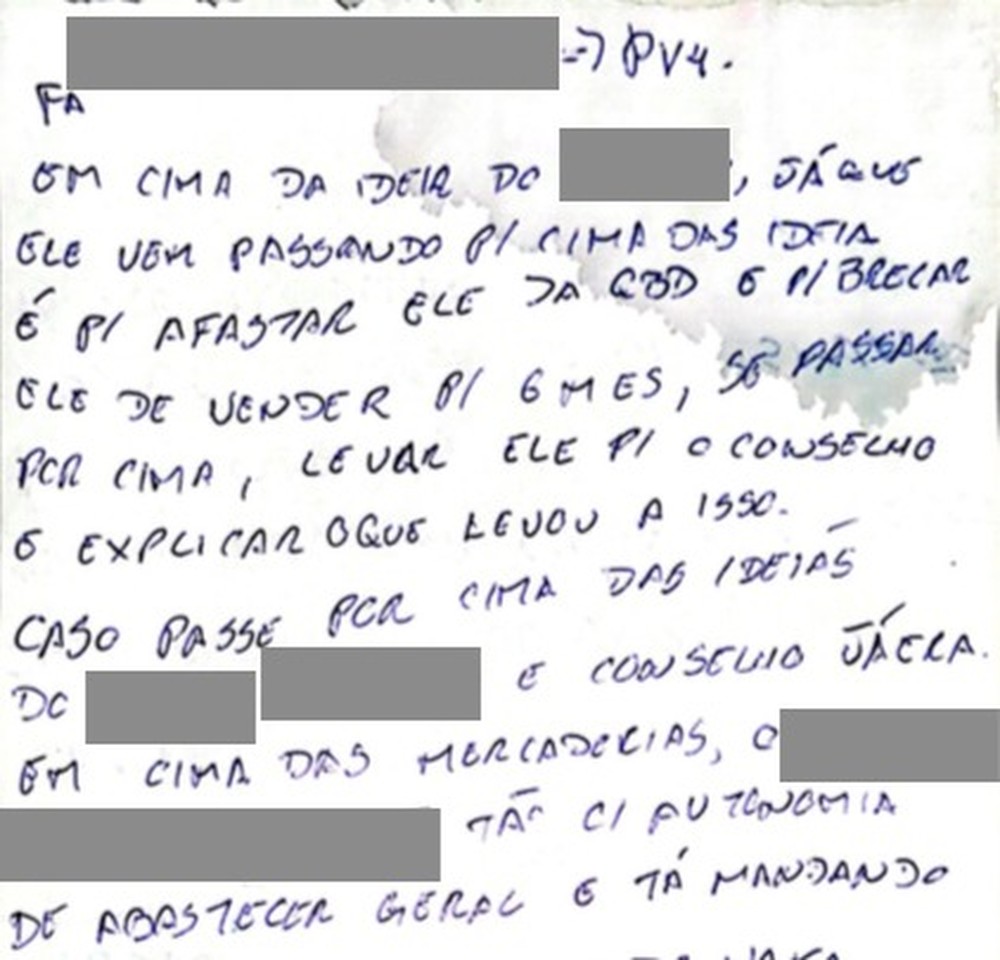 => PV4.
FA
EM CIMA DA IDEIA DO , JÁ QUE
ELE VEM PASSANDO P/ CIMA DAS IDEIA
É P/ AFASTAR ELE DA QBD E P/ BRECAR
ELE DE VENDER P/ 6 MES, SE PASSAR
POR CIMA, LEVAR ELE P/ O CONSELHO
E EXPLICAR OQUE LEVOU A ISSO.
CASO PASSE POR CIMA DAS IDEIAS
DO E CONSELHO JÁ ERA.
EM CIMA DAS MERCADORIAS, O
TÃO C/ AUTONOMIA
DE ABASTECER GERAL E TÁ MANDANDO